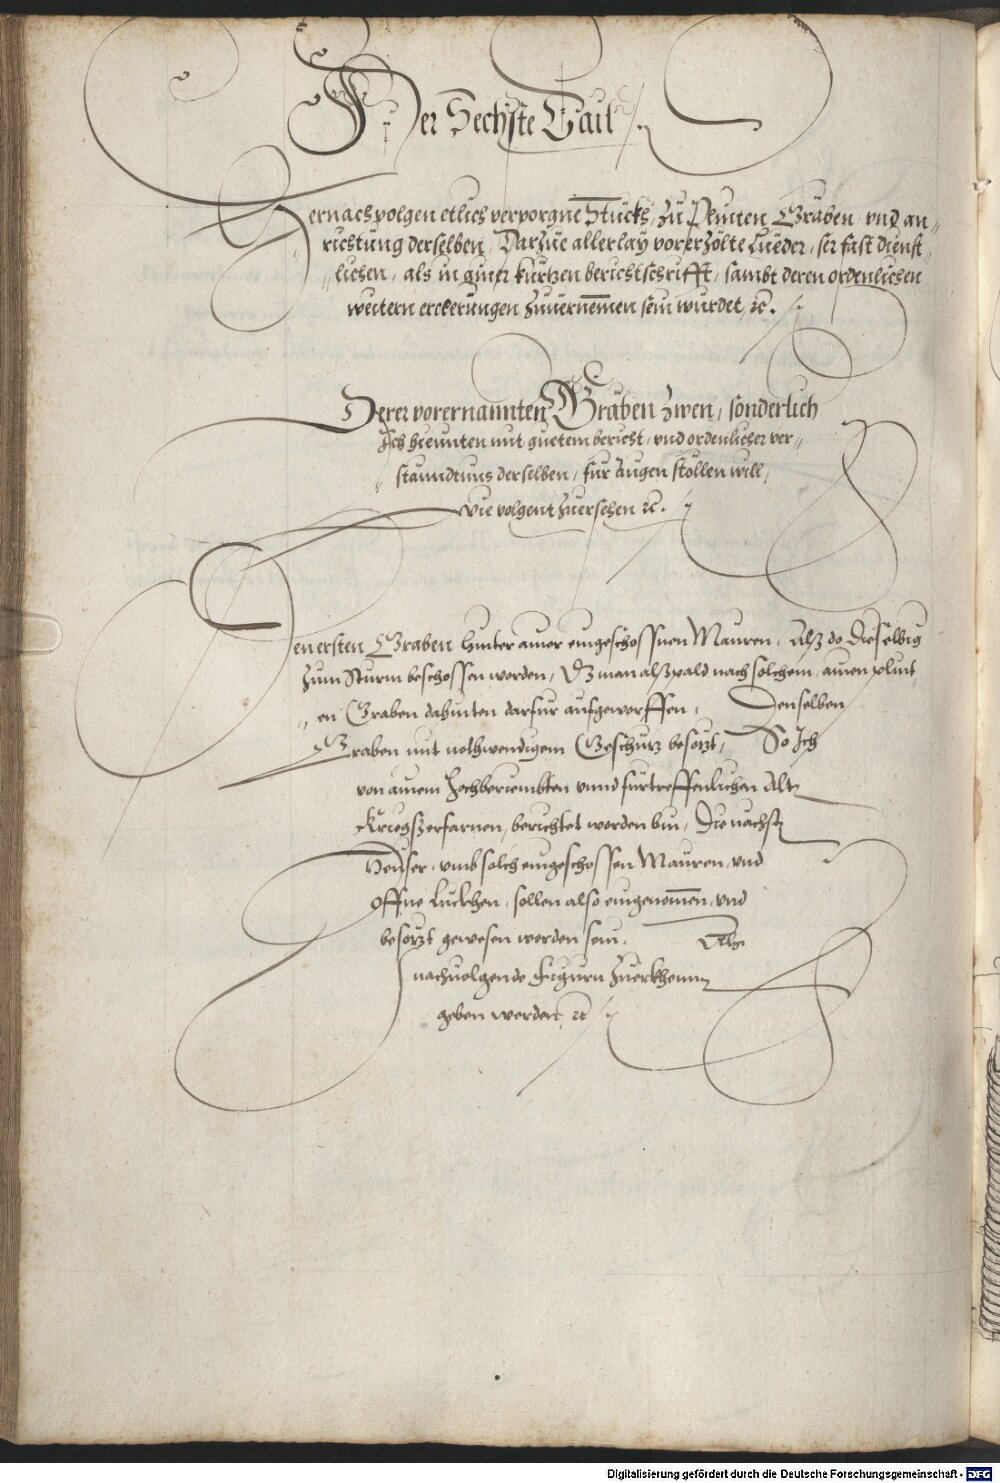 Der Sechste Tail
Hernach volgen etlich verporgne Stuckh zu Plinten Gräben vnd an„
richtung derselben, Darzue allerlay vorerzölte Lueder, ser fast dienst„
„lichen, als in guter kurtzen berichtschrifft, sambt deren ordenlichen
weitern erclerungen zuuernemen sein wurdet, ꝛc.
Derer vorernannten Gräben zwen, sonderlich
Ich hieunten mit guetem bericht, vnd ordenlicher ver„
„stanndtnus derselben, für Augen stöllen will,
wie volgent zuersehen ꝛc.
Den ersten Graben hinter ainer eingeschossnen Mauren, Alß do dieselbig
zum Sturm beschossen worden, Dz man alßpald nach solchem, ainen plint„
„en Graben dahinten darfur aufgeworffen, Denselben
Graben mit nothwendigem Geschütz besötzt, So Ich
von ainem Hochberiembten vnnd fürtreffenlichen Alt
Kriegszerfarnen, berichtet worden bin, Die nächst
Heuser, vmb solch eingeschossen Mauren, vnd
offne Luckhen, sollen also eingenomen, vnd
besötzt gewesen worden sein, Alß
nachuolgende Figurn zuerkhenn
geben werden, ꝛc
Digitalisierung gefördert durch die Deutsche Forschungsgemeinschaft - DFG